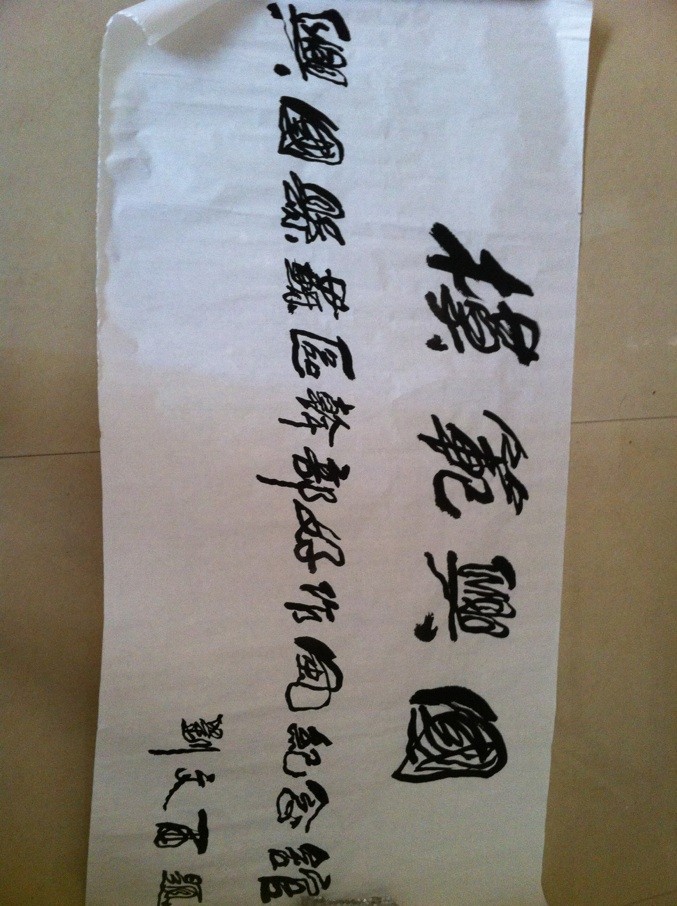 模範興國
興國縣蘇區幹部好作風紀念館
劉文西題